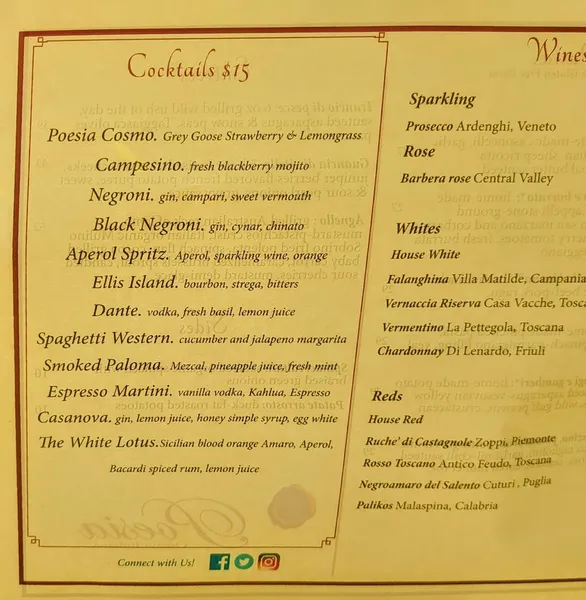 Cocktails $15
Poesia Cosmo. Grey Goose Strawberry & Lemongrass
Campesino. fresh blackberry mojito
Negroni. gin, campari, sweet vermouth
Black Negroni. gin, cynar, chinato
Aperol Spritz. Aperol, sparkling wine, orange
Ellis Island. bourbon, strega, bitters
Dante. vodka, fresh basil, lemon juice
Spaghetti Western. cucumber and jalapeno margarita
Smoked Paloma. Mezcal, pineapple juice, fresh mint
Espresso Martini. vanilla vodka, Kahlua, Espresso
Casanova. gin, lemon juice, honey simple syrup, egg white
The White Lotus. Sicilian blood orange Amaro, Aperol,
Bacardi spiced rum, lemon juice
Connect with Us!
Wines
Sparkling
Prosecco Ardenghi, Veneto
Rose
Barbera rose Central Valley
Whites
House White
Falanghina Villa Matilde, Campania
Vernaccia Riserva Casa Vacche, Tosc
Vermentino La Pettegola, Toscana
Chardonnay Di Lenardo, Friuli
Reds
House Red
Ruche' di Castagnole Zoppi, Piemonte
Rosso Toscano Antico Feudo, Toscana
Negroamaro del Salento Cuturi, Puglia
Palikos Malaspina, Calabria